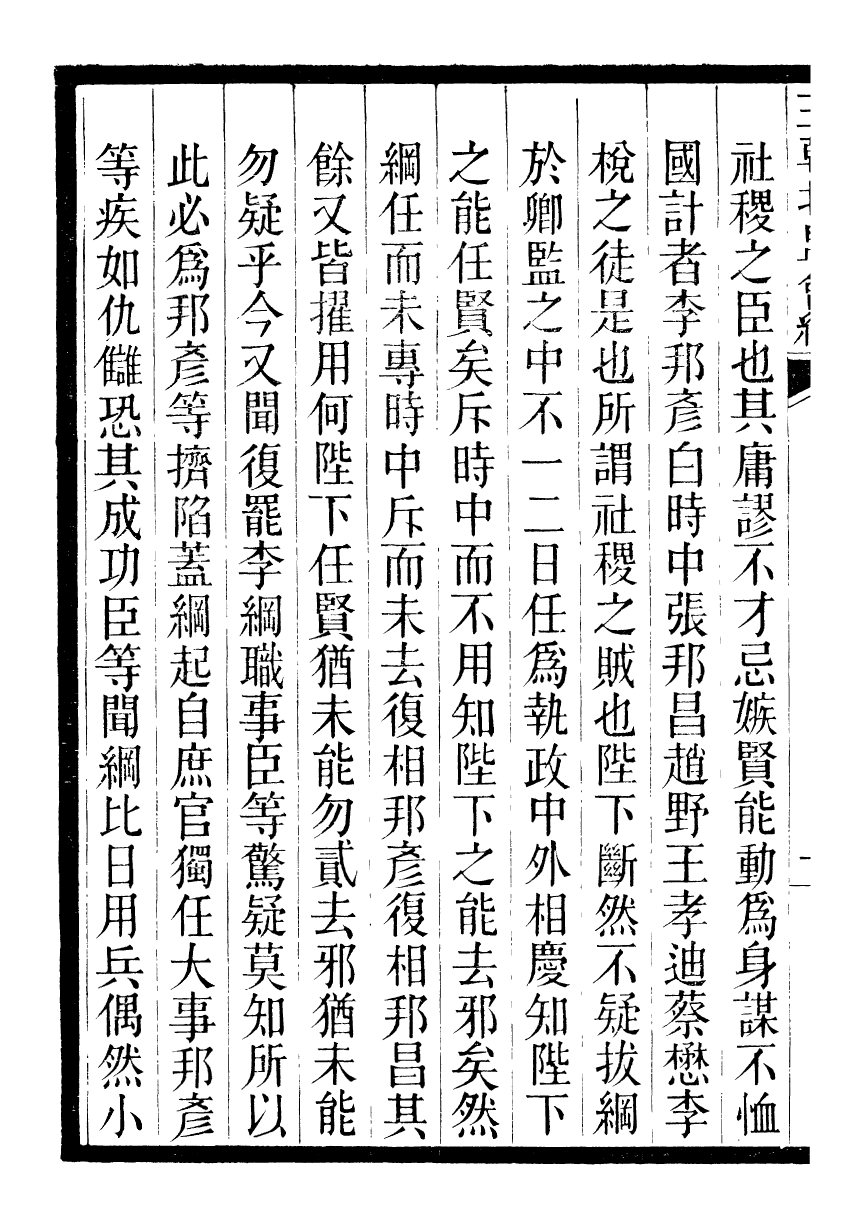 社稷之臣也其庸謬不才忌嫉賢能動爲身謀不恤
國計者李邦彥白時中張邦昌趙野王孝迪蔡懋李
梲之徒是也所謂社稷之賊也陛下斷然不疑拔綱
於卿監之中不一二日任爲執政中外相慶知陛下
之能任賢矣斥時中而不用知陛下之能去邪矣然
綱任而未專時中斥而未去復相邦彥復相邦昌其
餘又皆擢用何陛下任賢猶未能勿貳去邪猶未能
勿疑乎今又聞復罷李綱職事臣等驚疑莫知所以
此必爲邦彥等擠陷蓋綱起自庶官獨任大事邦彥
等疾如仇讎恐其成功臣等聞綱比日用兵偶然小